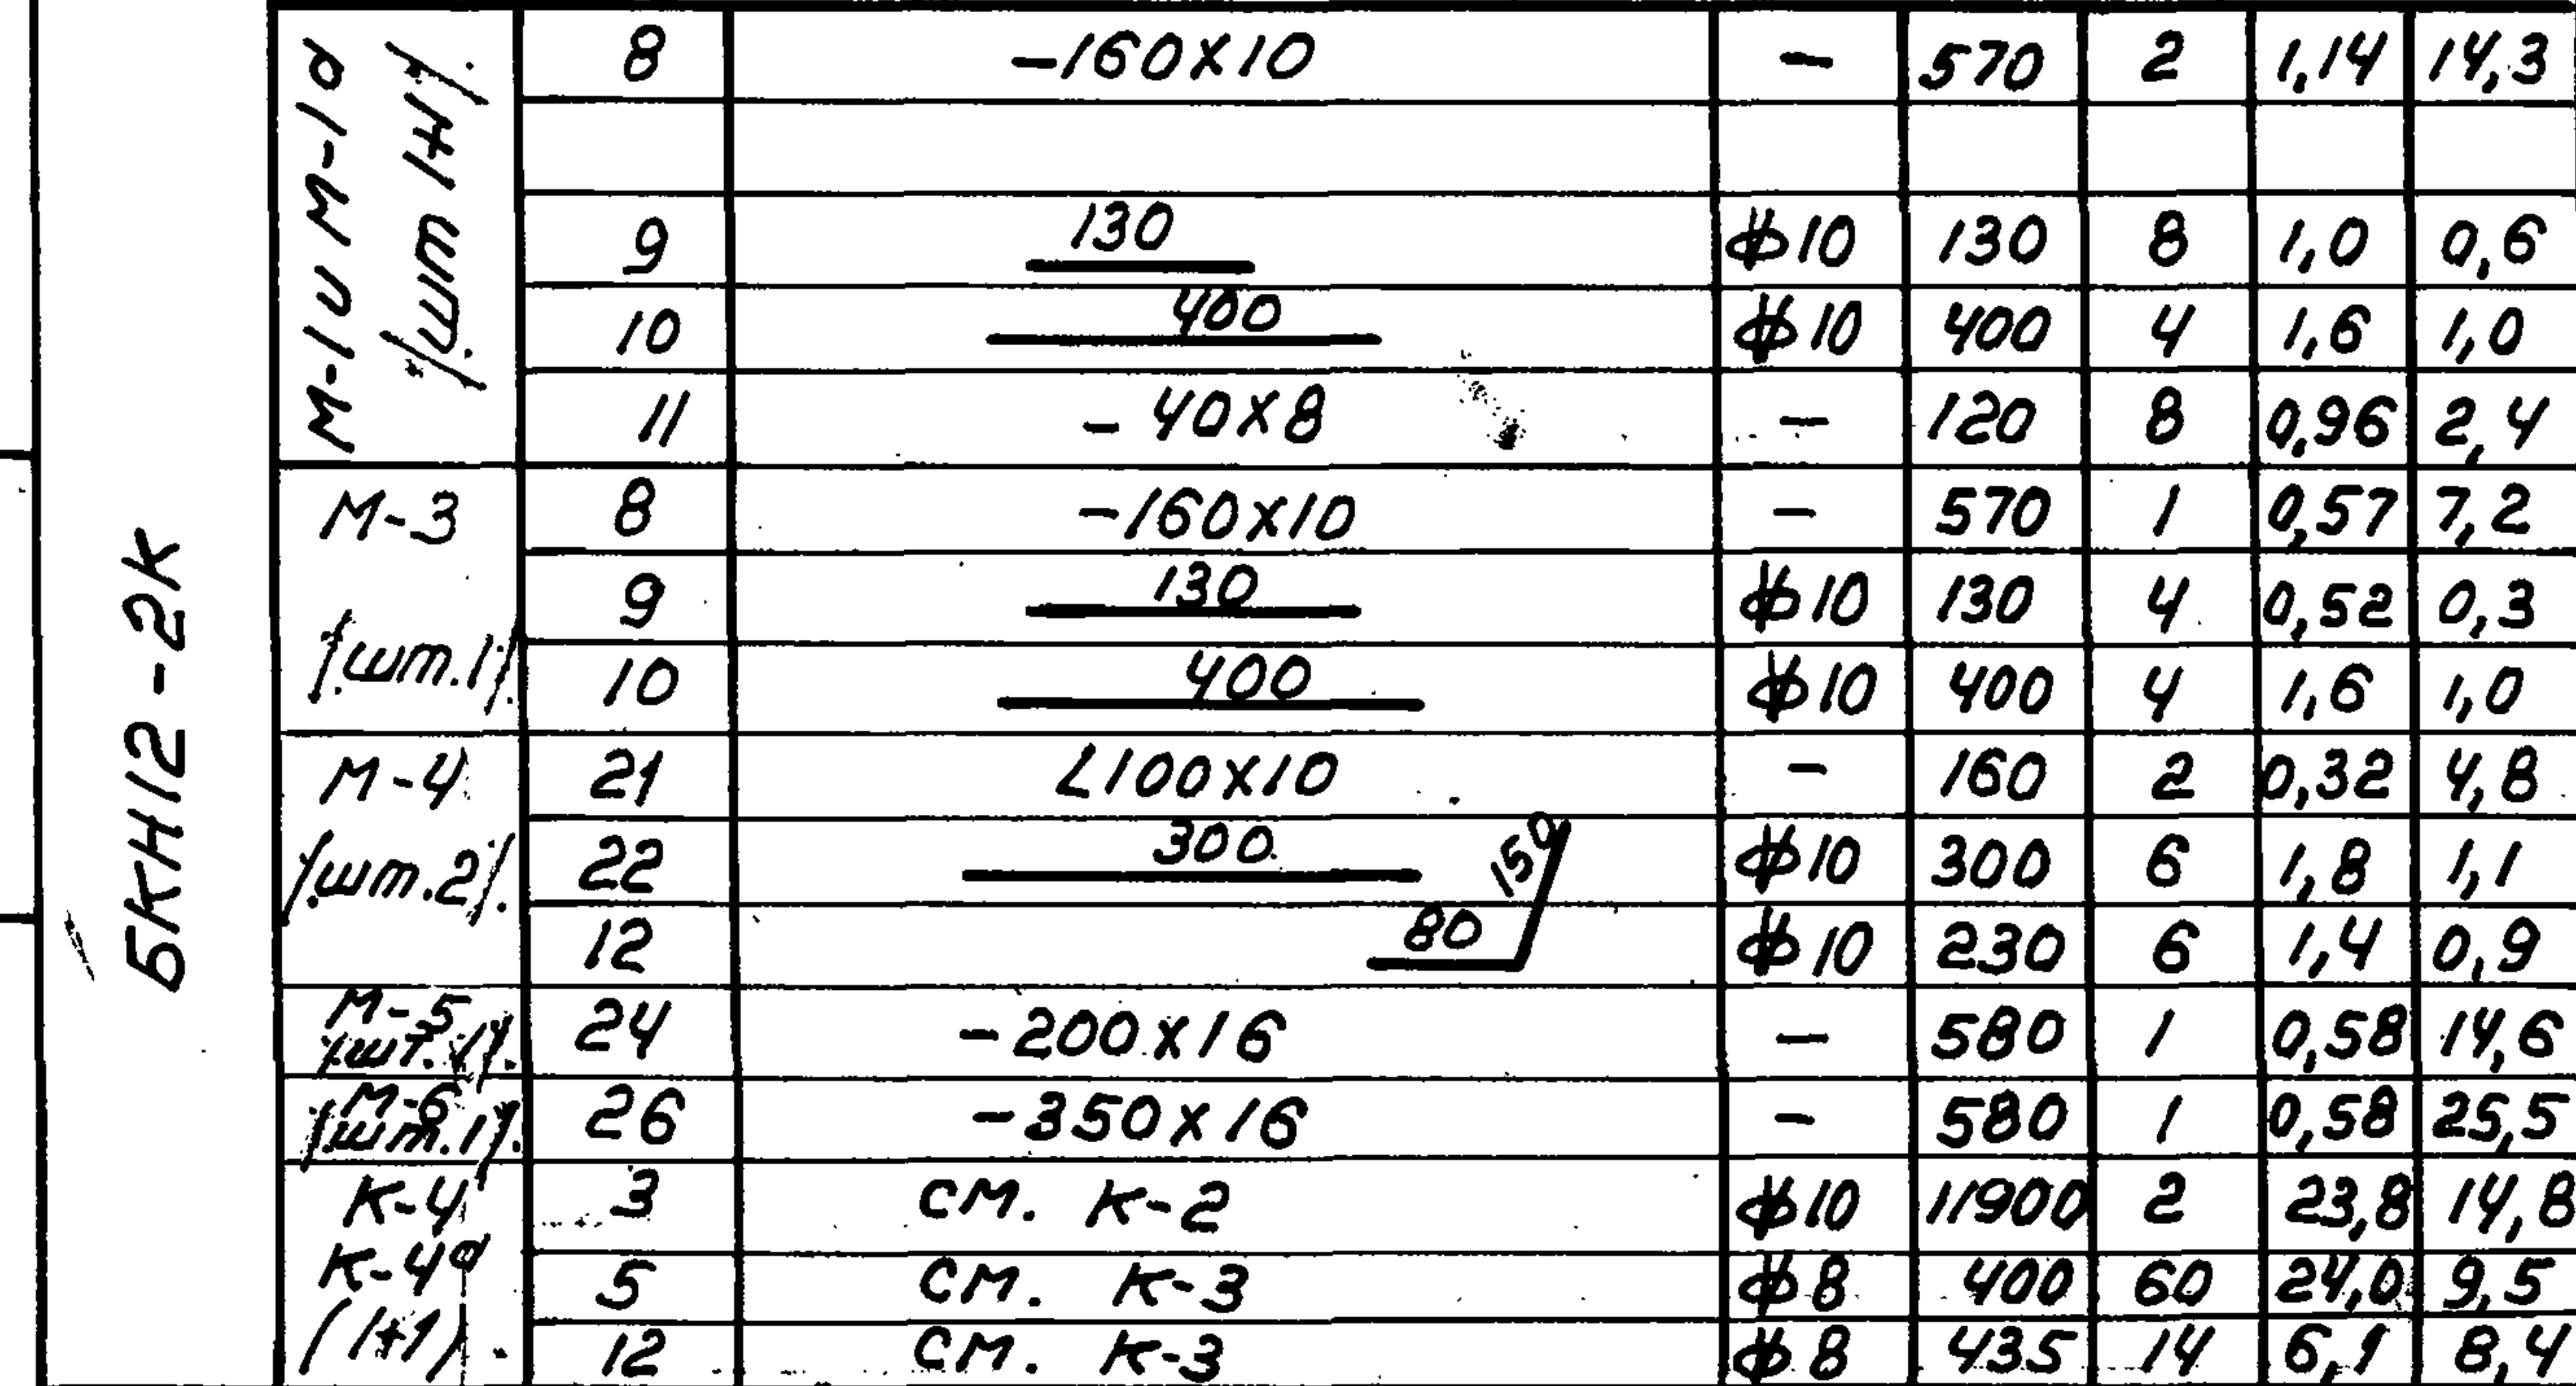 БКН12-2К
М-1 и М-1а
/шт 1+1/.
8 -160х10 - 570 2 1,14 14,3
9 130 ф10 130 8 1,0 0,6
10 400 ф10 400 4 1,6 1,0
11 - 40х8 - 120 8 0,96 2,4
М-3
/шт.1/.
8 -160х10 - 570 1 0,57 7,2
9 130 ф10 130 4 0,52 0,3
10 400 ф10 400 4 1,6 1,0
М-4
/шт.2/.
21 L100х10 - 160 2 0,32 4,8
22 300 ф10 300 6 1,8 1,1
12 80 150 ф10 230 6 1,4 0,9
М-5
/шт.1/.
24 -200х16 - 580 1 0,58 14,6
М-6
/шт.1/.
26 -350х16 - 580 1 0,58 25,5
К-4
К-4а
(1+1).
3 см. К-2 ф10 11900 2 23,8 14,8
5 см. К-3 ф8 400 60 24,0 9,5
12 см. К-3 ф8 435 14 6,1 8,4